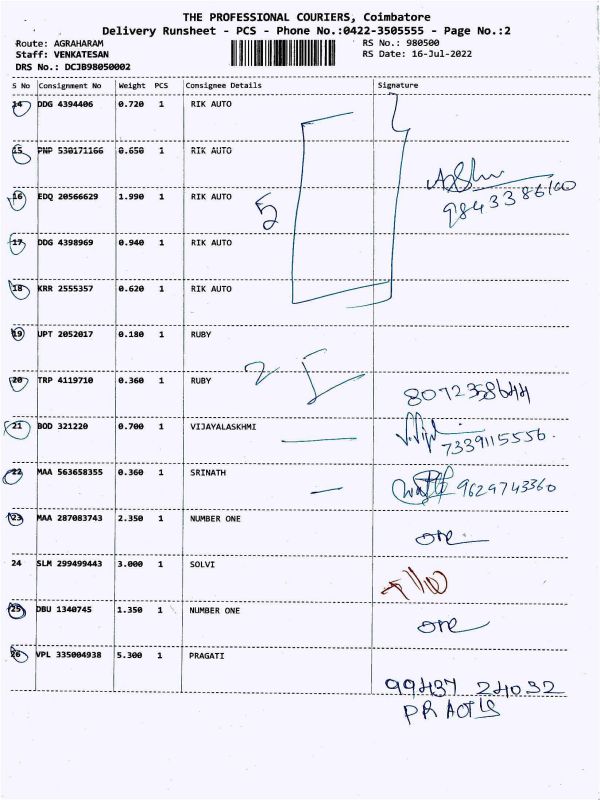 THE PROFESSIONAL COURIERS, Coimbatore
Delivery Runsheet - PCS - Phone No.:0422-3505555 - Page No.:2
Route: AGRAHARAM RS No.: 980500
Staff: VENKATESAN RS Date: 16-Jul-2022
DRS No.: DCJB98050002
S No Consignment No Weight PCS Consignee Details Signature
14 DDG 4394406 0.720 1 RIK AUTO
15 PNP 530171166 0.650 1 RIK AUTO
16 EDQ 20566629 1.990 1 RIK AUTO
5 9843386100
17 DDG 4398969 0.940 1 RIK AUTO
18 KRR 2555357 0.620 1 RIK AUTO
19 UPT 2052017 0.180 1 RUBY
20 TRP 4119710 0.360 1 RUBY 2
8072358644
21 BOD 321220 0.700 1 VIJAYALASKHMI
7339115556
22 MAA 563658355 0.360 1 SRINATH 9629743360
23 MAA 287083743 2.350 1 NUMBER ONE
24 SLM 299499443 3.000 1 SOLVI
25 DBU 1340745 1.350 1 NUMBER ONE
26 VPL 335004938 5.300 1 PRAGATI
99437 24032